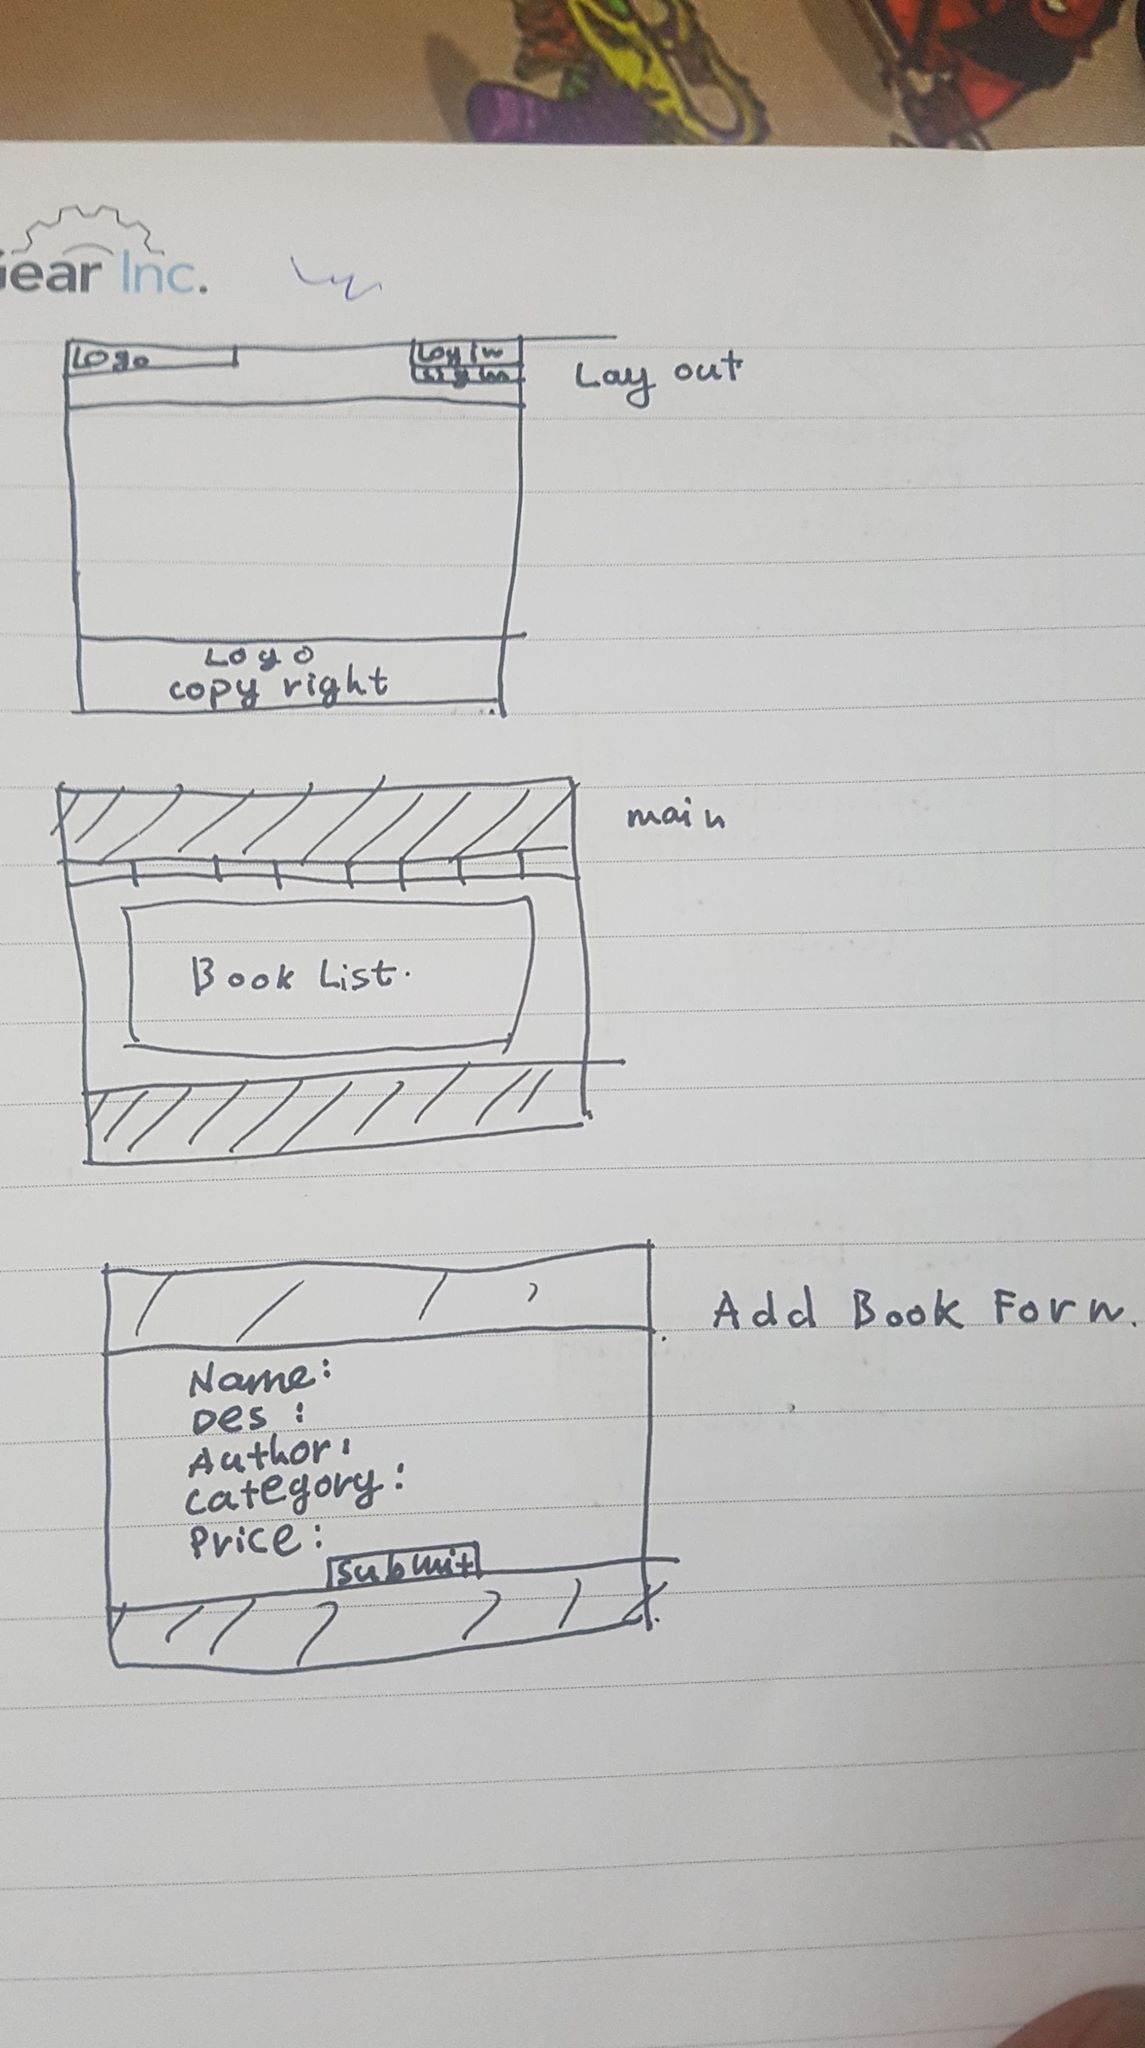 Gear Inc.
Logo
Login
Lay out
Logo
copy right
main
Book List.
Add Book Form.
Name:
Des :
Author:
category:
Price:
Submit